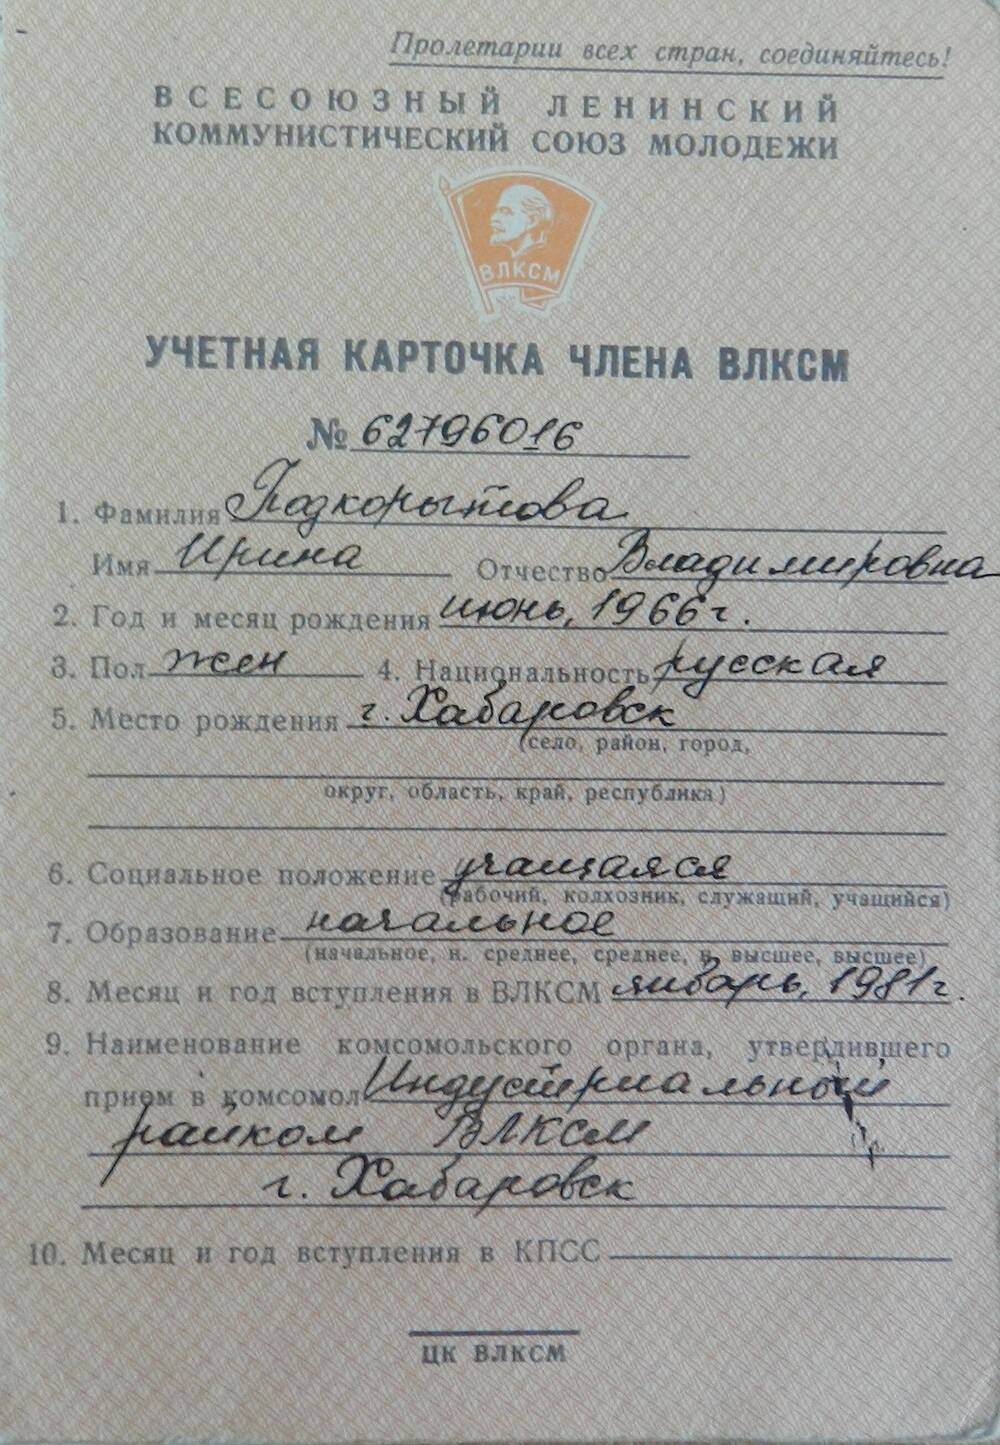 Пролетарии всех стран, соединяйтесь!
ВСЕСОЮЗНЫЙ ЛЕНИНСКИЙ
КОММУНИСТИЧЕСКИЙ СОЮЗ МОЛОДЕЖИ
ВЛКСМ
УЧЕТНАЯ КАРТОЧКА ЧЛЕНА ВЛКСМ
№ 62796016
1. Фамилия Подкорытова
Имя Ирина Отчество Владимировна
2. Год и месяц рождения июнь, 1966 г.
3. Пол жен 4. Национальность русская
5. Место рождения г. Хабаровск
(село, район, город,
округ, область, край, республика)
6. Социальное положение учащаяся
(рабочий, колхозник, служащий, учащийся)
7. Образование начальное
(начальное, н. среднее, среднее, н. высшее, высшее)
8. Месяц и год вступления в ВЛКСМ январь, 1981 г.
9. Наименование комсомольского органа, утвердившего
прием в комсомол Индустриальный
райком ВЛКСМ
г. Хабаровск
10. Месяц и год вступления в КПСС
ЦК ВЛКСМ